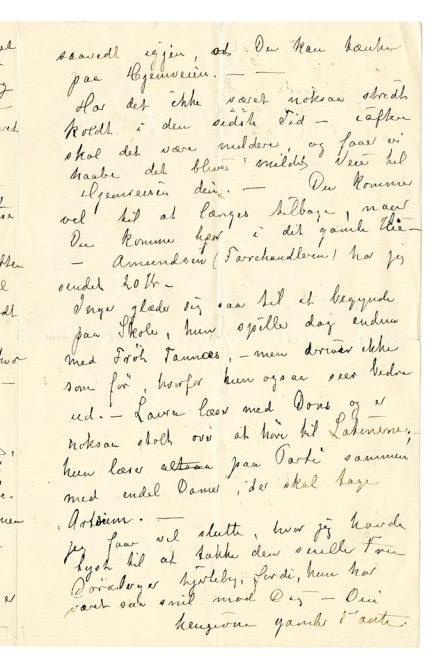 saavidt igjen, at Du kan tænke
paa Hjemveien. — —
Har det ikke været noksaa stridt
koldt i den sidste Tid — iaften
skal det være mildere, og faar vi
haabe det bliver mildt Veir til
Hjemreisen din. — Du kommer
vel til at længes tilbage, naar
Du kommer her i det gamle
— Amundsen (Farvehandleren) har jeg
sendt 20 Kr —
Inga glæder sig saa til at begynde
paa Skole, hun spille dog endnu
med Frøk , — men driver ikke
som før, hvorfor hun ogsaa seer bedre
ud. — Laura læser med Dons og er
noksaa stolt over at høre til Latinerne, —
hun læser paa Parti sammen
med endel Damer, der skal tage
Artium. —
Jeg faar vel slutte, hvor jeg havde
Lyst til at takke den snille Fru
hjertelig, fordi hun har
været saa snil mod Dig — Din
hengivne gamle Tante.